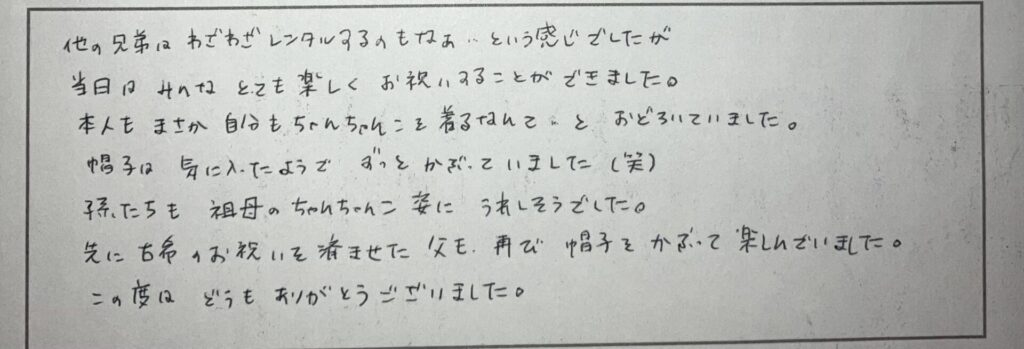 他の兄弟は わざわざ レンタルするのもなぁ‥という感じでしたが
当日は みんな とても 楽しく お祝いすることができました。
本人も まさか 自分も ちゃんちゃんこを 着るなんて‥と おどろいていました。
帽子は 気に入ったようで ずっと かぶっていました(笑)
孫たちも 祖母の ちゃんちゃんこ 姿に うれしそうでした。
先に 古希のお祝いを 済ませた 父も、再び 帽子を かぶって 楽しんでいました。
この度は どうも ありがとうございました。